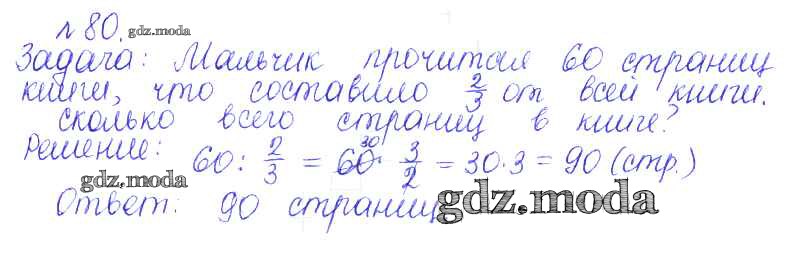 №80. gdz.moda
Задача: Мальчик прочитал 60 страниц
книги, что составило 2/3 от всей книги.
Сколько всего страниц в книге?
Решение: 60 : 2/3 = 60 30 · 3/2 = 30·3 = 90 (стр.)
gdz.moda
Ответ: 90 страниц gdz.moda